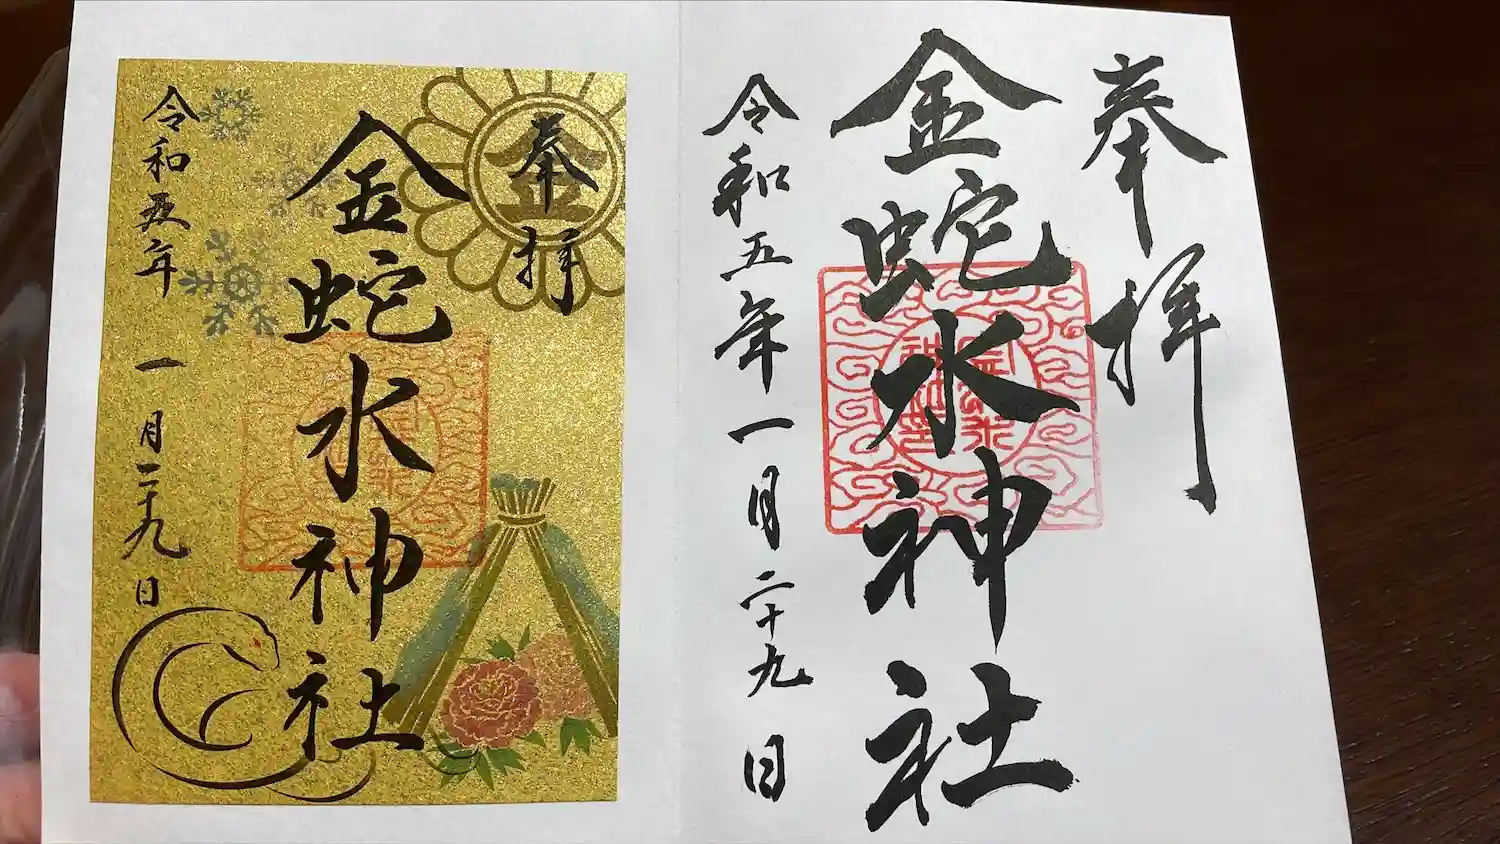 奉拝
金蛇水神社
令和五年一月二十九日
金
奉拝
金蛇水神社
令和五年一月二十九日